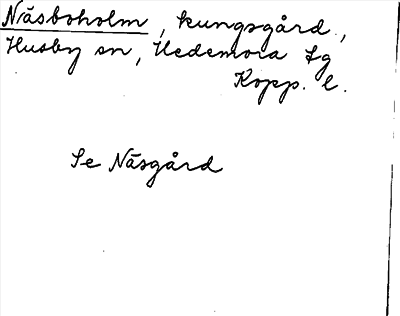 Näsboholm, kungsgård,
Husby sn, Hedemora tg
Kopp. l.
Se Näsgård